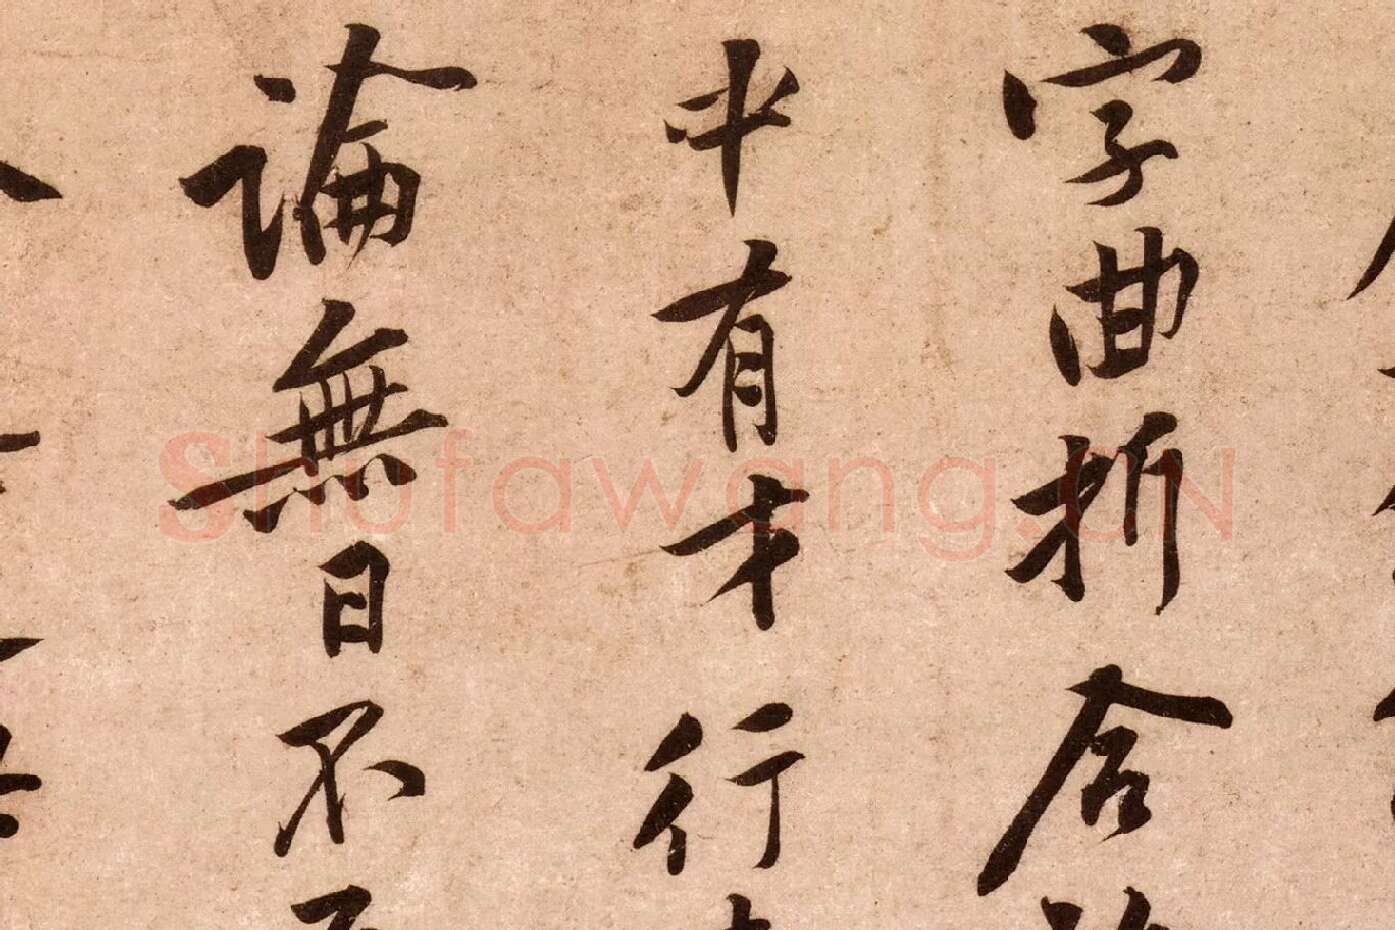 字曲折含
中有才行
論無日不
Shufawang.CN